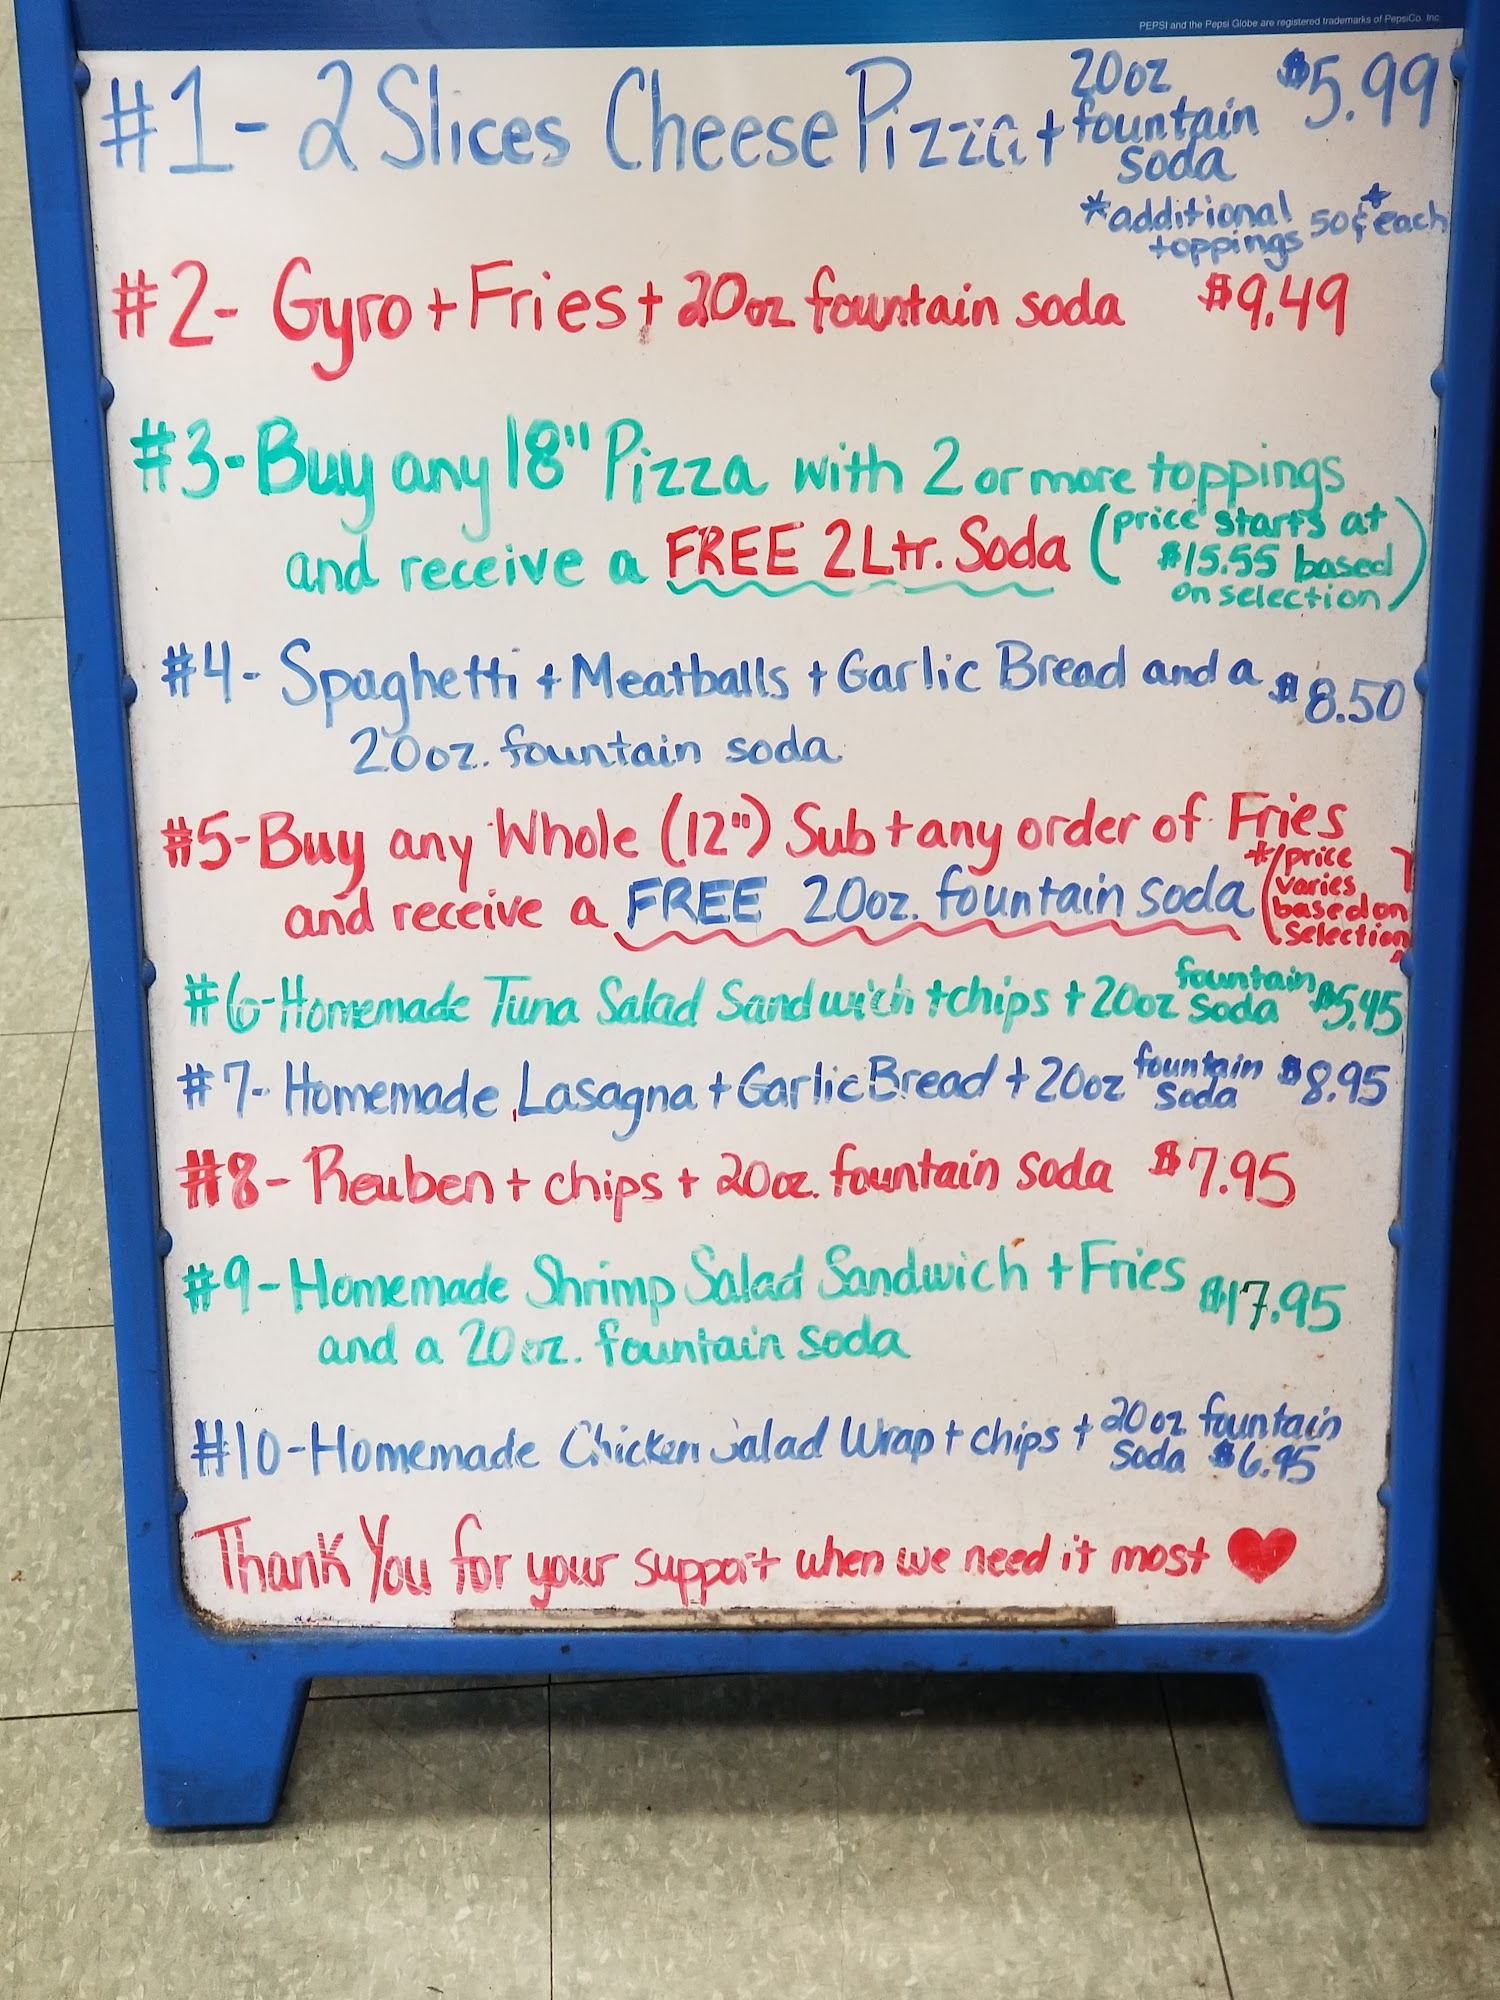 PEPSI and the Pepsi Globe are registered trademarks of PepsiCo. Inc
#1- 2 Slices Cheese Pizza + 20oz fountain soda $5.99
*additional toppings 50¢+ each
#2- Gyro + Fries + 20oz fountain soda $9.49
#3- Buy any 18" Pizza with 2 or more toppings
and receive a FREE 2Ltr. Soda (price starts at $15.55 based on selection)
#4- Spaghetti + Meatballs + Garlic Bread and a $8.50
20oz. fountain soda
#5- Buy any Whole (12") Sub + any order of Fries
and receive a FREE 20oz. fountain soda (*price varies based on selection)
#6- Homemade Tuna Salad Sandwich + chips + 20oz fountain soda $5.45
#7- Homemade Lasagna + Garlic Bread + 20oz fountain soda $8.95
#8- Reuben + chips + 20oz. fountain soda $7.95
#9- Homemade Shrimp Salad Sandwich + Fries $17.95
and a 20oz. fountain soda
#10- Homemade Chicken Salad Wrap + chips + 20oz fountain soda $6.95
Thank You for your support when we need it most ♥